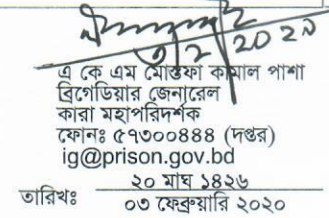 ৩/২/২০২০
এ কে এম মোস্তফা কামাল পাশা
ব্রিগেডিয়ার জেনারেল
কারা মহাপরিদর্শক
ফোনঃ ৫৭৩০০৪৪৪ (দপ্তর)
ig@prison.gov.bd
তারিখঃ ২০ মাঘ ১৪২৬
০৩ ফেব্রুয়ারি ২০২০